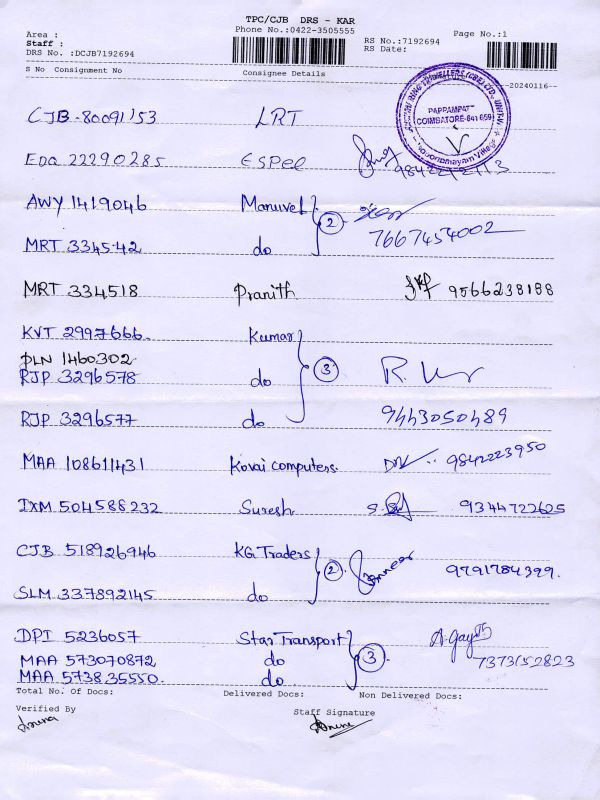 TPC/CJB DRS - KAR
Area :
Phone No.:0422-3505555
Page No.:1
Staff :
RS No.:7192694
DRS No. :DCJB7192694
RS Date:
S No Consignment No Consignee Details
-20240116-
PAPPAMPATTI
COIMBATORE-641 659
CJB -80091153 LRT
EDQ 22290285 Espee
9842292113
AWY 1419046 Manuvel } 2
7667454002
MRT 334542 do
MRT 334518 Pranith 9566238188
KVT 2997666 Kumar } 3
PLN 1460302
RJP 3296578 do
RJP 3296577 do 9443050489
MAA 108611431 Kovai computers. 9842223950
IXM 504588232 Suresh 9344722625
CJB 518926946 KG Traders } 2 9791784399.
SLM 337892145 do
DPI 5236057 Star Transport } 3
MAA 573070872 do 7373152823
MAA 573835550. do
Total No. Of Docs: Delivered Docs: Non Delivered Docs:
Verified By Staff Signature